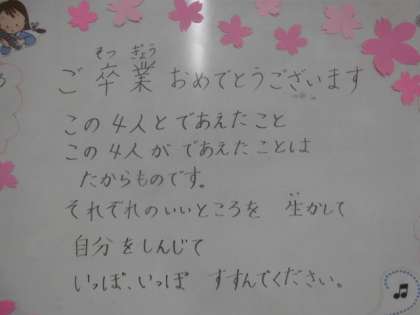 そつ ぎょう
ご 卒業 おめでとうございます
この4人とであえたこと
この4人が であえたことは
たからものです。
それぞれのいいところを 生かして
自分をしんじて
いっぽ、いっぽ すすんでください。